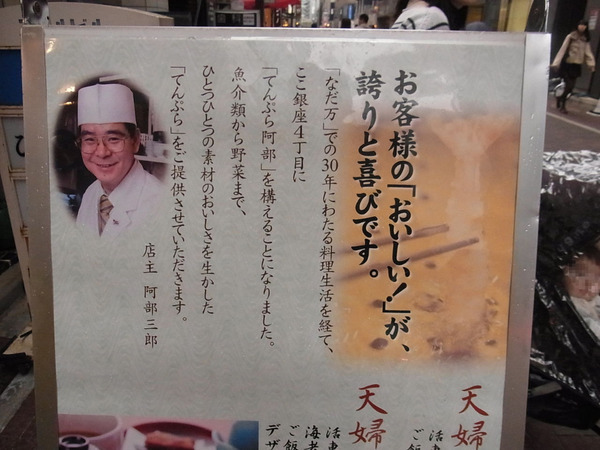 お客様の「おいしい！」が、
誇りと喜びです。
「なだ万」での30年にわたる料理生活を経て、
ここ銀座4丁目に
「てんぷら阿部」を構えることになりました。
魚介類から野菜まで、
ひとつひとつの素材のおいしさを生かした
「てんぷら」をご提供させていただきます。
店主 阿部三郎
天婦
活車
ご飯
天婦
活車
海老
ご飯
デザ